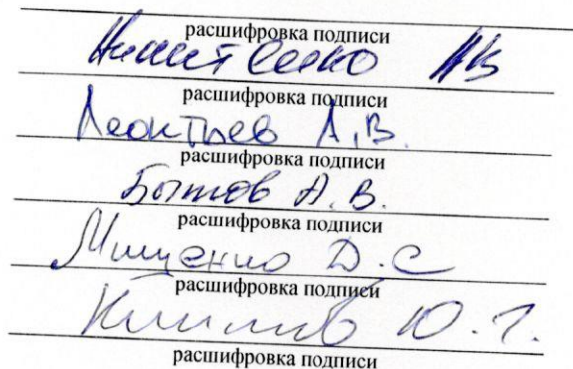 расшифровка подписи
Никитенко
расшифровка подписи
Леонтьев А.В.
расшифровка подписи
Бытов А.В.
расшифровка подписи
Мищенко Д.С
расшифровка подписи
Климов Ю.Г.
расшифровка подписи